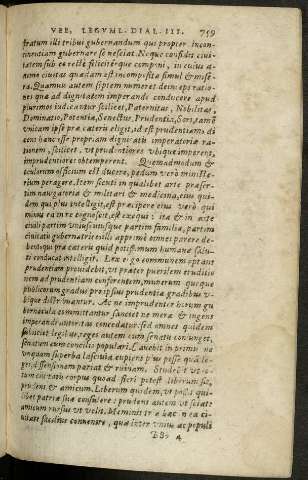 VEL LEGVM. DIAL. III. 759
stratum illi tribus gubernandum qui propter incon
tinentiam gubernare se nesciat. Neque confidis civi
tatem sub eo recte feliciterque componi, in cuius a
nimo civitas quædam est incomposita simul & mise
ra. Quamuis autem septem numeret deinceps ratio
nes quæ ad dignitatem imperandi conducere apud
plurimos iudicantur scilicet, Paternitas, Nobilitas,
Dominatio, Potentia, Senectus, Prudentia, Sors, tamen
vnicam ipse præ cæteris eligit, id est prudentiam: di
cens hanc esse propriam dignitatis imperatoriæ ra
tionem, scilicet, vt prudentiores vbique imperent,
imprudentiores obtemperent. Quemadmodum &
oculorum officium est ducere, pedum verò ministe
rium peragere. Item sicuti in qualibet arte præser
tim nauigatoria & militari & medicina, eius qui
dem qui plus intelligit, est præcipere eius verò qui
minus ea in re cognoscit, est exequi: ita & in arte
ciuili partim vniuscuiusque partim familiæ, partim
ciuitatis gubernatrice illi apprimè omnes parere de-
bent qui præ cæteris quid potissimum humanæ salu-
ti conducat intelligit. Lex ergo communem optans
prudentiam prouidebit, vt præter puerilem eruditio
nem ad prudentiam conferentem, munerum quoque
publicorum gradus pro ipsius prudentiæ gradibus v-
bique distribuantur. Ac ne imprudenter horum gu
bernacula committantur sanciet ne mera & ingens
imperandi autoritas concedatur. sed omnes quidem
subijciet legibus, reges autem cum senatu coniunget,
senatum cum concilijs populari. Cauebit in primis ne
vnquam superba lasciuia cupiens plus posse quàm le-
git, dissensionem pariat & ruinam. Studebit vt to-
tum ciuitatis corpus quoad fieri potest liberum sit,
prudens & amicum. Liberum quidem, vt possis qui-
libet patriæ suæ consulere: prudens autem vt sciat:
amicum rursus vt velit. Meminit itaque hac in ea ci-
uitate facilius conuenire, quæ inter vnius ac populi
BBb 4